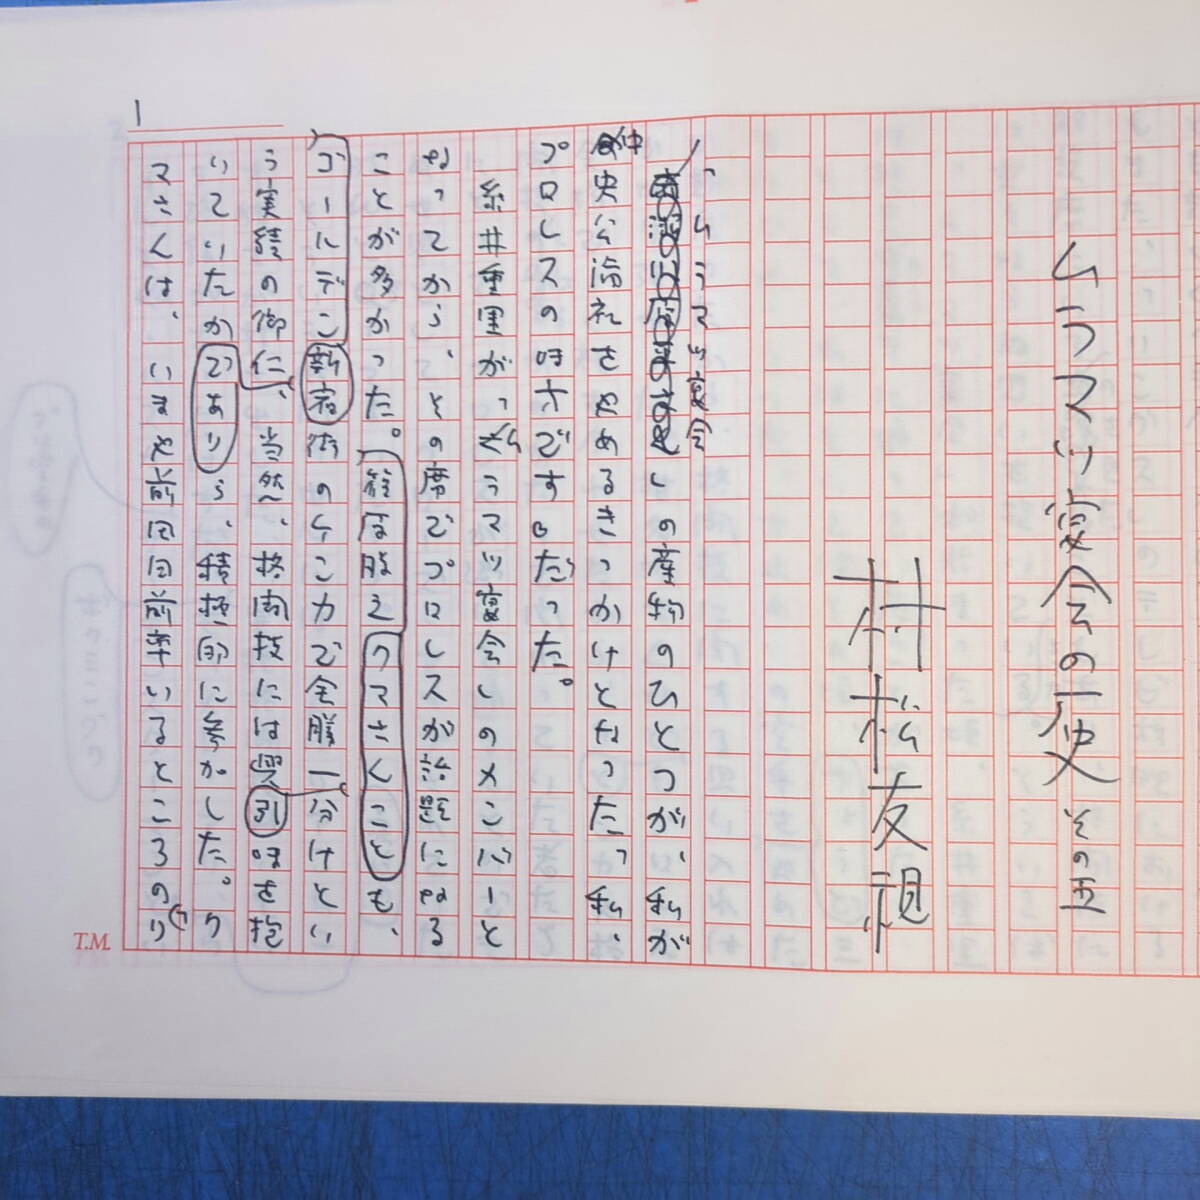 ムラマツ宴会の歴史 その五
村松友視
「ムラマツ宴会
」の産物のひとつが、私が
中央公論社をやめるきっかけとなった『私、
プロレスの味方です』だった。
糸井重里が「ムラマツ宴会」のメンバーと
なってから、その席でプロレスが話題になる
ことが多かった。篠原勝之クマさんことも、
ゴールデン街のケンカで全勝一分けとい
う実績の御仁、当然、格闘技には興味を抱
いていたから、積極的に参加した。ク
マさんは、いまや前田日明率いるところのリ
1
T.M.